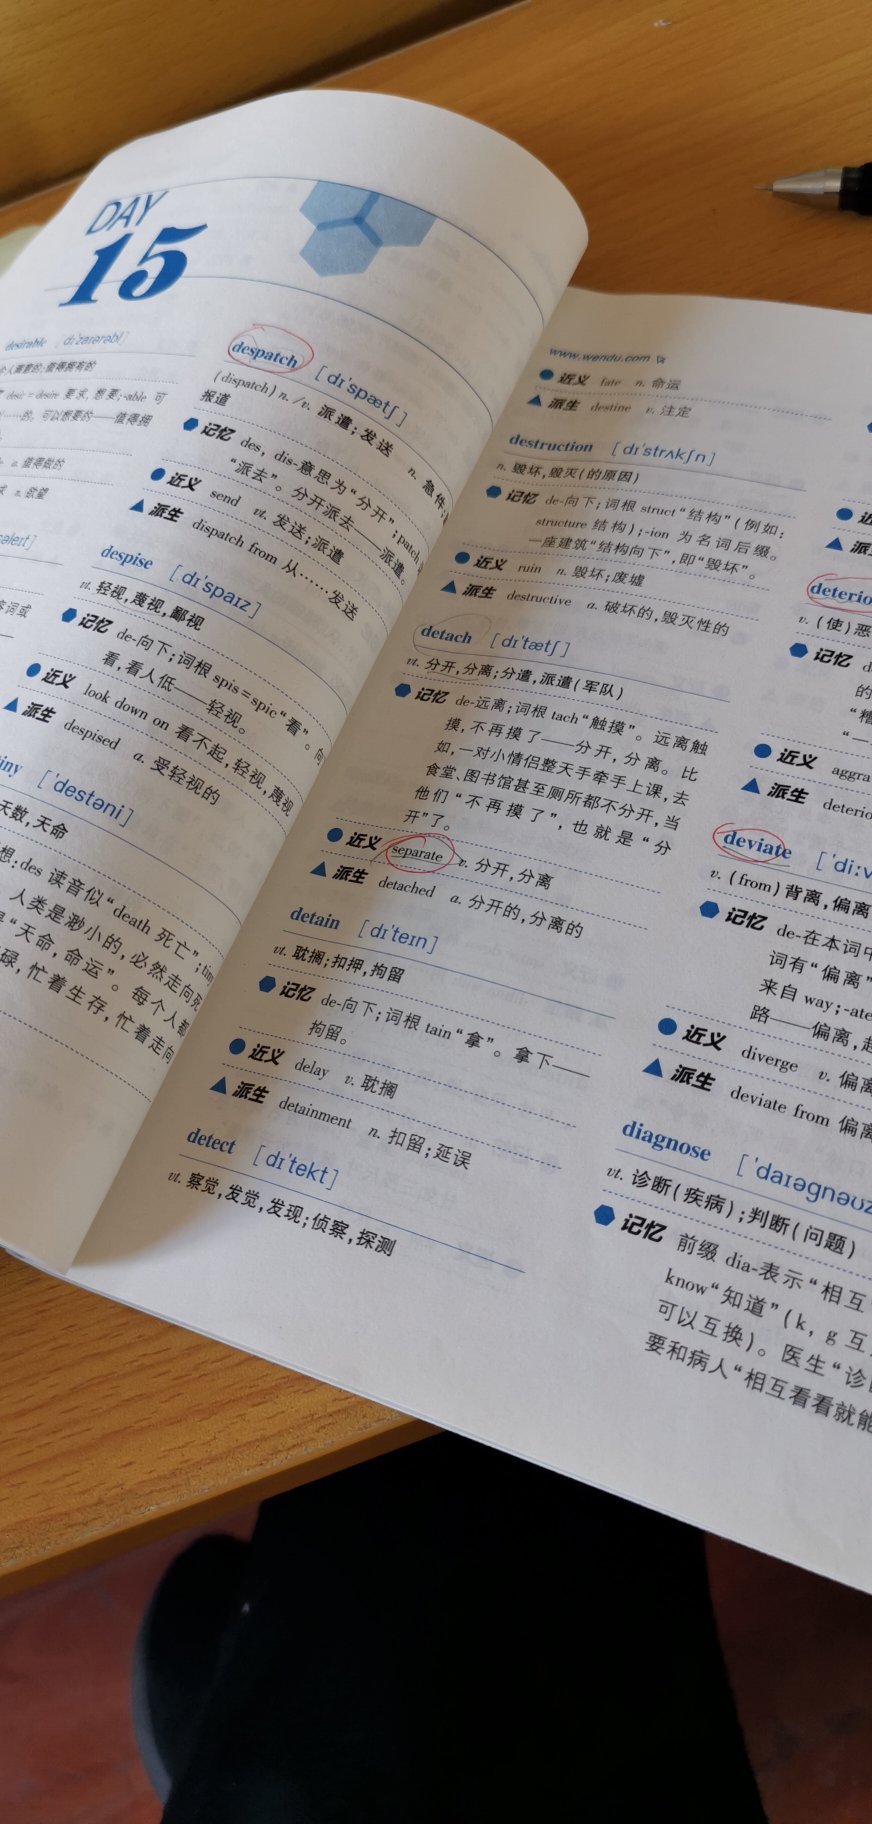 DAY
15
desirable
值得拥有的
desir = desire 要求,想要;-able 可
……的。可以想要的——值得拥
a. 值得做的
n. 欲望
despatch [dɪˈspætʃ]
(dispatch) n./v. 派遣;发送 n. 急件;
报道
记忆 des, dis-意思为“分开”;patch
“派去”。分开派去——派遣。
近义 send vt. 发送;派遣
派生 dispatch from 从……发送
despise [dɪˈspaɪz]
vt. 轻视,蔑视,鄙视
记忆 de-向下;词根 spis = spic“看”。向
看,看人低——轻视。
近义 look down on 看不起,轻视,蔑视
派生 despised a. 受轻视的
tiny [ˈdestəni]
天数,天命
想:des 读音似“death 死亡”;tiny
人类是渺小的,必然走向死
“天命,命运”。每个人都
碌,忙着生存,忙着走向
www.wendu.com
近义 fate n. 命运
派生 destine v. 注定
destruction [dɪˈstrʌkʃn]
n. 毁坏,毁灭(的原因)
记忆 de-向下;词根 struct“结构”(例如:
structure 结构);-ion 为名词后缀。
一座建筑“结构向下”,即“毁坏”。
近义 ruin n. 毁坏;废墟
派生 destructive a. 破坏的,毁灭性的
detach [dɪˈtætʃ]
vt. 分开,分离;分遣,派遣(军队)
记忆 de-远离;词根 tach“触摸”。远离触
摸,不再摸了——分开,分离。比
如,一对小情侣整天手牵手上课,去
食堂、图书馆甚至厕所都不分开,当
他们“不再摸了”,也就是“分
开”了。
近义 separate v. 分开,分离
派生 detached a. 分开的,分离的
detain [dɪˈteɪn]
vt. 耽搁;扣押,拘留
记忆 de-向下;词根 tain“拿”。拿下——
拘留。
近义 delay v. 耽搁
派生 detainment n. 扣留;延误
detect [dɪˈtekt]
vt. 察觉,发觉,发现;侦察,探测
近
派
deterio
v. (使)恶
记忆
的
“糟
“一
近义 aggra
派生 deterio
deviate [ˈdiːv
v. (from) 背离,偏离
记忆 de-在本词中
词有“偏离”
来自 way;-ate
路——偏离,
近义 diverge v. 偏离
派生 deviate from 偏离
diagnose [ˈdaɪəɡnəʊz
vt. 诊断(疾病);判断(问题)
记忆 前缀 dia-表示“相互
know“知道”(k, g 互
可以互换)。医生“诊
要和病人“相互看看就能